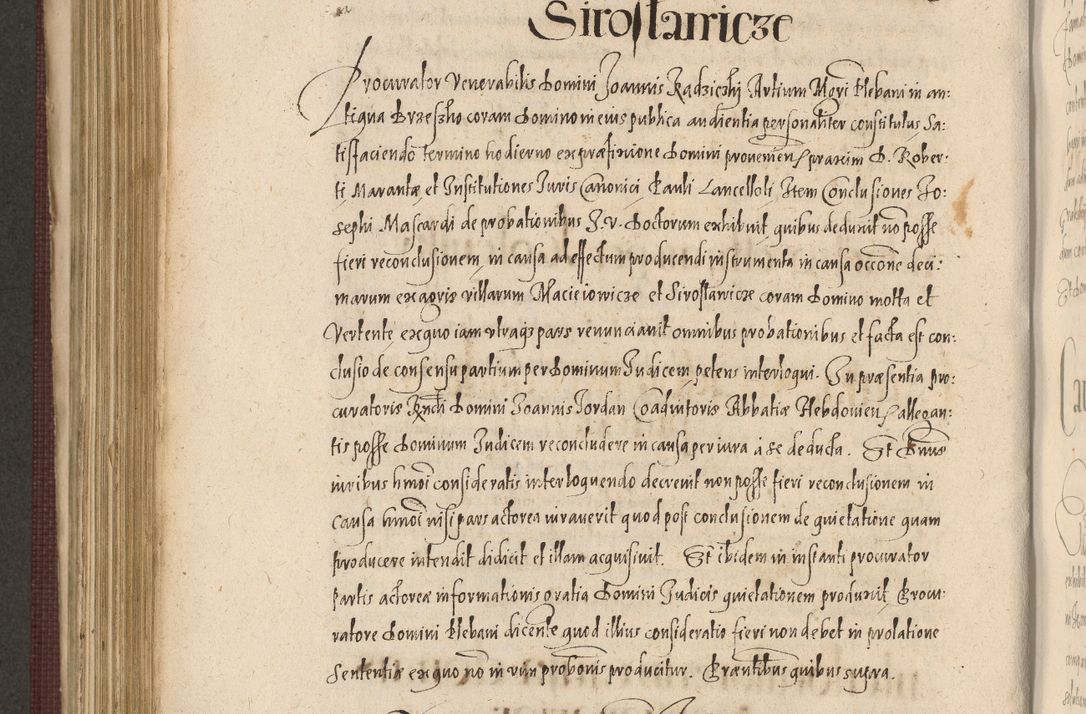 Sirosławicze
Procurator Venerabilis Domini Joannis Radziczkij Artium Mgri Plebani in an-
tiqua Brzeszko coram Domino in eius publica audientia personaliter constitutus Sa-
tisfaciendo termino hodierno ex præfixione Domini provenien praxim D. Rober-
ti Marantæ et Institutiones Juris Canonici Pauli Lancelloti Item Conclusiones Jo-
sephi Mascardi de probationibus J. V. Doctorum exhibuit, quibus deduxit nō posse
fieri reconclusionem in causa ad effectum producendi instrumenta in causa occōne deci-
marum ex agris villarum Macieiowicze et Sirosławicze coram Domino motta et
Vertente ex quo iam vtraqz pars renunciavit omnibus probationibus et facta est con-
clusio de consensu partium per Dominum Judicem petens interloqui. In præsentia pro-
curatoris Rndi Domini Joannis Jordan Coadiutoris Abbatiæ Hebdovien allegan-
tis posse Dominum Judicem reconcludere in causa per iura a se deducta. Et Dnus
iuribus hmōi consideratis interloquendo decrevit non posse fieri reconclusionem in
causa hmōi nisi pars actorea iuraverit quod post conclusionem de quietatione quam
producere intendit didicit et illam acquisivit. Et ibidem in instanti procurator
partis actoreæ informationis gratia Domini Judicis quietationem produxit Procu-
ratore Domini Plebani dicente quod illius consideratio fieri non debet in prolatione
Sententiæ ex quo nō in vim probōnis producitur. Præntibus quibus supra.